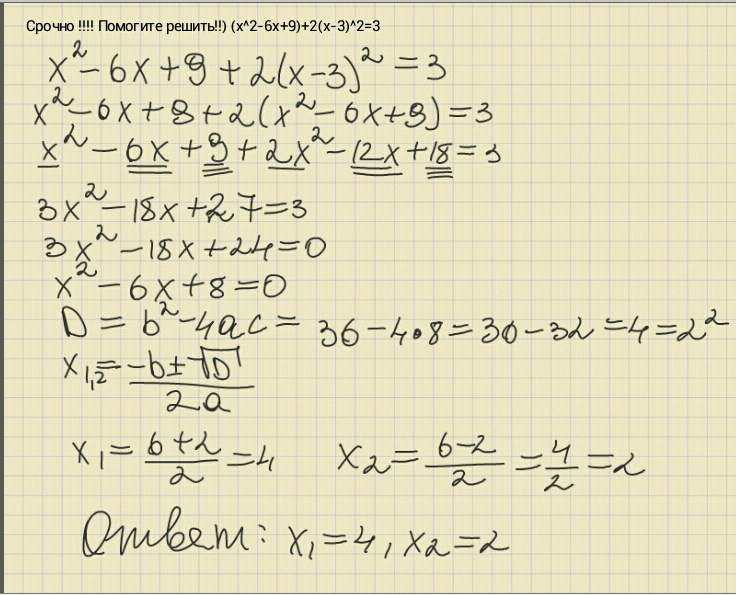 Срочно !!!! Помогите решить!!) (x^2-6x+9)+2(x-3)^2=3
x² - 6x + 9 + 2(x-3)² = 3
x² - 6x + 9 + 2(x² - 6x + 9) = 3
x² - 6x + 9 + 2x² - 12x + 18 = 3
3x² - 18x + 27 = 3
3x² - 18x + 24 = 0
x² - 6x + 8 = 0
D = b² - 4ac = 36 - 4•8 = 36 - 32 = 4 = 2²
x₁,₂ = (-b ± √D) / 2a
x₁ = (6+2)/2 = 4 x₂ = (6-2)/2 = 4/2 = 2
Ответ: x₁ = 4, x₂ = 2